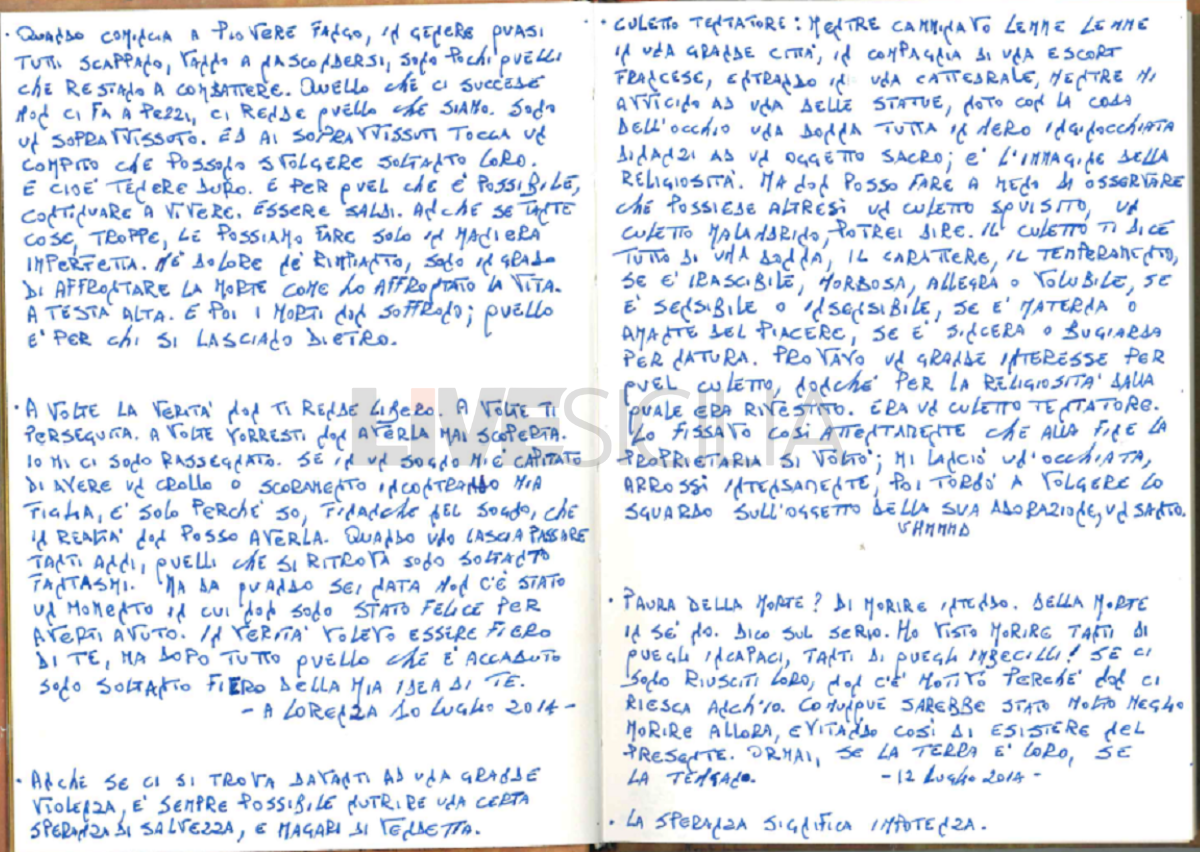 · QUANDO COMINCIA A PIOVERE FANGO, IN GENERE QUASI
TUTTI SCAPPANO, VANNO A NASCONDERSI, SOLO POCHI QUELLI
CHE RESTANO A COMBATTERE. QUELLO CHE CI SUCCEDE
NON CI FA A PEZZI, CI RENDE QUELLO CHE SIAMO. SONO
UN SOPRAVVISSUTO. ED AI SOPRAVVISSUTI TOCCA UN
COMPITO CHE POSSONO SVOLGERE SOLTANTO LORO.
E CIOE' TENERE DURO. E PER QUEL CHE E' POSSIBILE,
CONTINUARE A VIVERE. ESSERE SALDI. ANCHE SE TANTE
COSE, TROPPE, LE POSSIAMO FARE SOLO IN MANIERA
IMPERFETTA. NE' DOLORE NE' RIMPIANTO, SONO IN GRADO
DI AFFRONTARE LA MORTE COME HO AFFRONTATO LA VITA.
A TESTA ALTA. E POI I MORTI NON SOFFRONO; QUELLO
E' PER CHI SI LASCIANO DIETRO.
· A VOLTE LA VERITA' NON TI RENDE LIBERO. A VOLTE TI
PERSEGUITA. A VOLTE VORRESTI NON AVERLA MAI SCOPERTA.
IO MI CI SONO RASSEGNATO. SE IN UN SOGNO MI E' CAPITATO
DI AVERE UN CROLLO O SCORAMENTO INCONTRANDO MIA
FIGLIA, E' SOLO PERCHE' SO, FINANCHE NEL SOGNO, CHE
IN REALTA' NON POSSO AVERLA. QUANDO UNO LASCIA PASSARE
TANTI ANNI, QUELLI CHE SI RITROVA SONO SOLTANTO
FANTASMI. MA DA QUANDO SEI NATA NON C'E' STATO
UN MOMENTO IN CUI NON SONO STATO FELICE PER
AVERTI AVUTO. IN VERITA' VOLEVO ESSERE FIERO
DI TE, MA DOPO TUTTO QUELLO CHE E' ACCADUTO
SONO SOLTANTO FIERO DELLA MIA IDEA DI TE.
- A LORENZA 10 LUGLIO 2014 -
· ANCHE SE CI SI TROVA DAVANTI AD UNA GRANDE
VIOLENZA, E' SEMPRE POSSIBILE NUTRIRE UNA CERTA
SPERANZA DI SALVEZZA, E MAGARI DI VENDETTA.
· CULETTO TENTATORE: MENTRE CAMMINAVO LEMME LEMME
IN UNA GRANDE CITTA', IN COMPAGNIA DI UNA ESCORT
FRANCESE, ENTRANDO IN UNA CATTEDRALE, MENTRE MI
AVVICINO AD UNA DELLE STATUE, NOTO CON LA CODA
DELL'OCCHIO UNA DONNA TUTTA IN NERO INGINOCCHIATA
DINANZI AD UN OGGETTO SACRO; E' L'IMMAGINE DELLA
RELIGIOSITA'. MA NON POSSO FARE A MENO DI OSSERVARE
CHE POSSIEDE ALTRESI' UN CULETTO SQUISITO, UN
CULETTO MALANDRINO, POTREI DIRE. IL CULETTO TI DICE
TUTTO DI UNA DONNA, IL CARATTERE, IL TEMPERAMENTO,
SE E' IRASCIBILE, MORBOSA, ALLEGRA O VOLUBILE, SE
E' SENSIBILE O INSENSIBILE, SE E' MATERNA O
AMANTE DEL PIACERE, SE E' SINCERA O BUGIARDA
PER NATURA. PROVAVO UN GRANDE INTERESSE PER
QUEL CULETTO, NONCHE' PER LA RELIGIOSITA' DALLA
QUALE ERA RIVESTITO. ERA UN CULETTO TENTATORE.
LO FISSAVO COSI' INTENTAMENTE CHE ALLA FINE LA
PROPRIETARIA SI VOLTO'; MI LANCIO' UN'OCCHIATA,
ARROSSI' INTENSAMENTE, POI TORNO' A VOLGERE LO
SGUARDO SULL'OGGETTO DELLA SUA ADORAZIONE, UN SANTO.
UHMMM
· PAURA DELLA MORTE? DI MORIRE INTENDO. DELLA MORTE
IN SE' NO. DICO SUL SERIO. HO VISTO MORIRE TANTI DI
QUEGLI INCAPACI, TANTI DI QUEGLI IMBECILLI! SE CI
SONO RIUSCITI LORO, NON C'E' MOTIVO PERCHE' NON CI
RIESCA ANCH'IO. COMUNQUE SAREBBE STATO MOLTO MEGLIO
MORIRE ALLORA, EVITANDO COSI' DI ESISTERE NEL
PRESENTE. ORMAI, SE LA TERRA E' LORO, SE
LA TENGANO. - 12 LUGLIO 2014 -
· LA SPERANZA SIGNIFICA IMPOTENZA.
LIVESICILIA